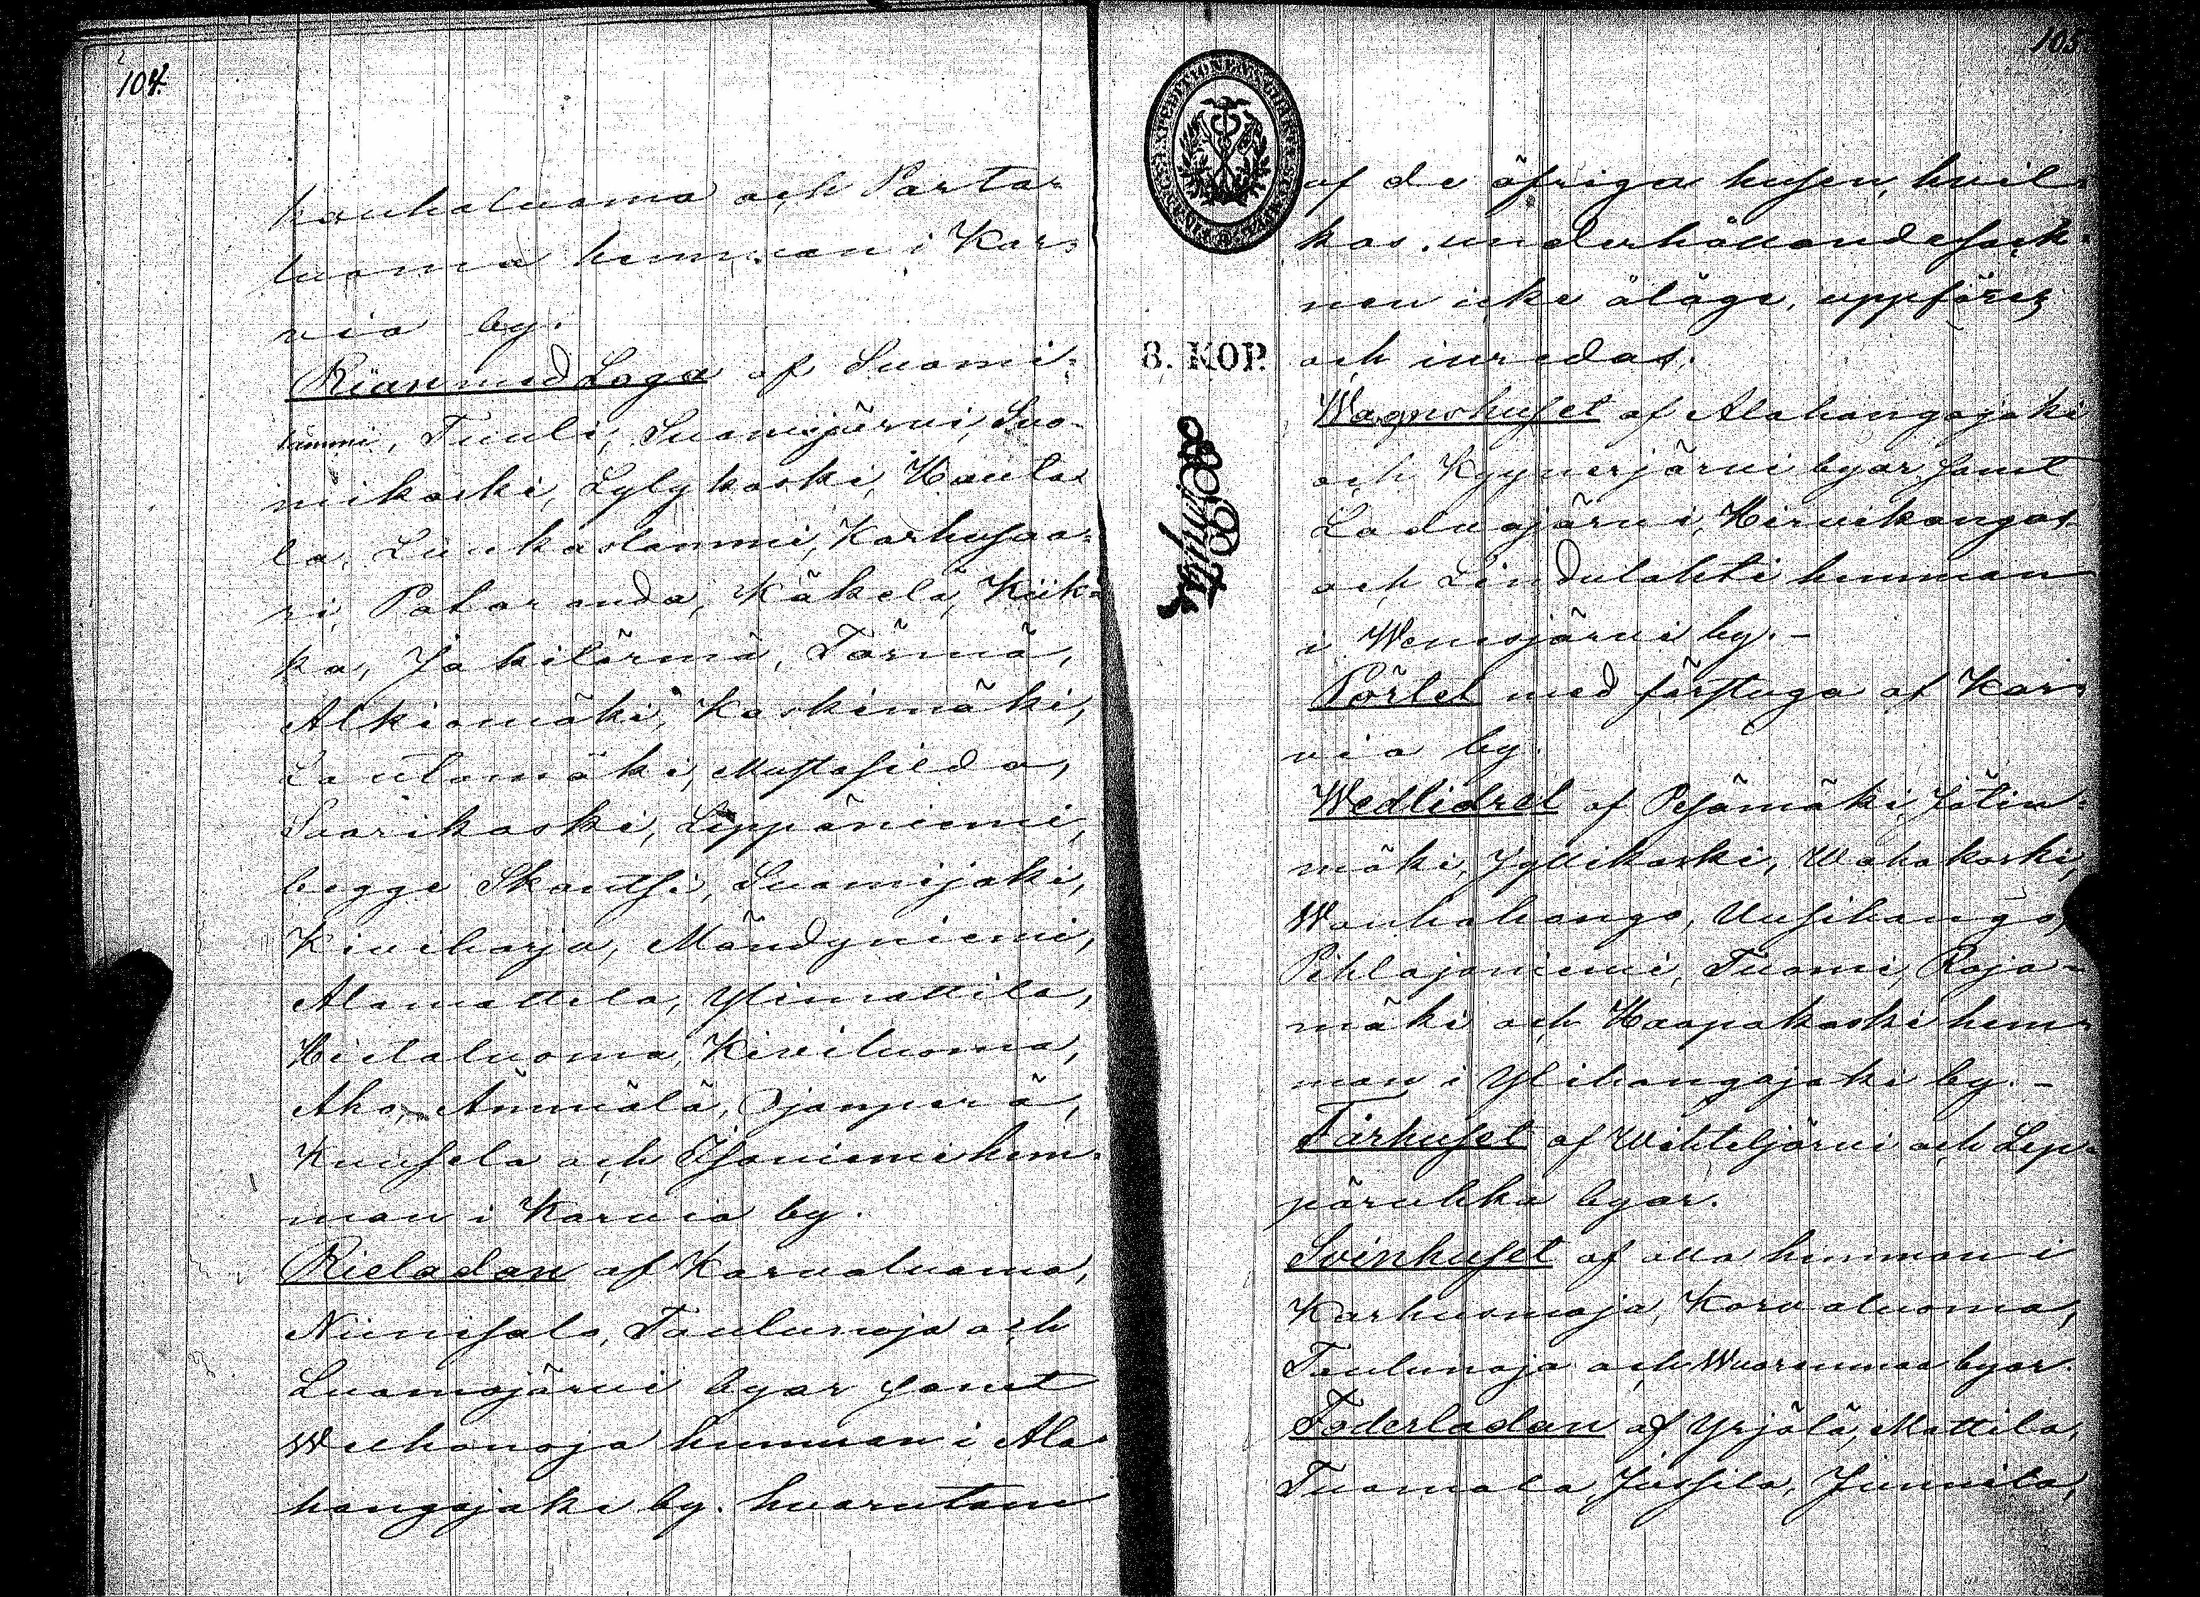 104.
kauhaluoma och Parta-
luoma hemman i Kar-
via by.
Rian med Loga af Suomi-
lammi, Tuuli, Suomijärvi, Suo-
mikoski, Lylykoski, Haula-
la, Liukaslammi, Karhusaa-
ri, Pataranda, Käkelä, Kiik-
ka, Jokilärmä, Törmä,
Alkiomäki, Koskimäki,
Lautamäki, Mustasilda,
Saarikoski, Leppäniemi,
begge Skantsi, Suomijoki,
Kiviharja, Mändyniemi,
Alamattila, Ylimattila,
Hietaluoma, Kiviluoma,
Aho, Ämmälä, Ojanperä,
Kuusela och Isoniemi hem-
man i Karvia by.
Rieladan af Karvaluoma,
Niinisalo, Toulunoja och
Luomajärvi byar samt
Welhonoja hemman i Ala-
hongojoki by. hvarutom
105.
8. KOP.
af de öfriga husen, hvil-
kas underhållande sock-
nen icke åläge, uppföres
och inredas.
Wagnshuset af Alahongojoki
och Kyynerjärvi byar samt
Ladvojärvi, Hirvikangas
och Lindulahti hemman
i Wenesjärvi by.-
Pörtet med förstuga af Kar-
via by.
Wedlidret af Pesämäki, Jätin-
mäki, Jyllikoski, Wahakoski,
Wanhahongo, Uusihongo,
Pihlajaniemi, Tuomi, Raja-
mäki och Haapakoski hem-
man i Ylihongojoki by.-
Fårhuset af Wihteljärvi och Lep-
päruhka byar.
Svinhuset af alla hemman i
Karhusmoja, Korvaluoma,
Toulunoja och Wuorenmaa byar.
Foderladan af Yrjälä, Mattila,
Tuomala, Jussila, Junnila,